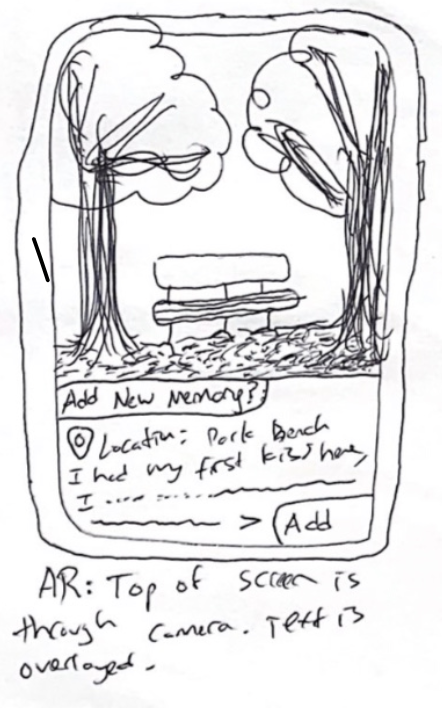 Add New Memory?
Location: Park Bench
I had my first kiss here,
I
> Add
AR: Top of screen is
through camera. Text is
overlayed.